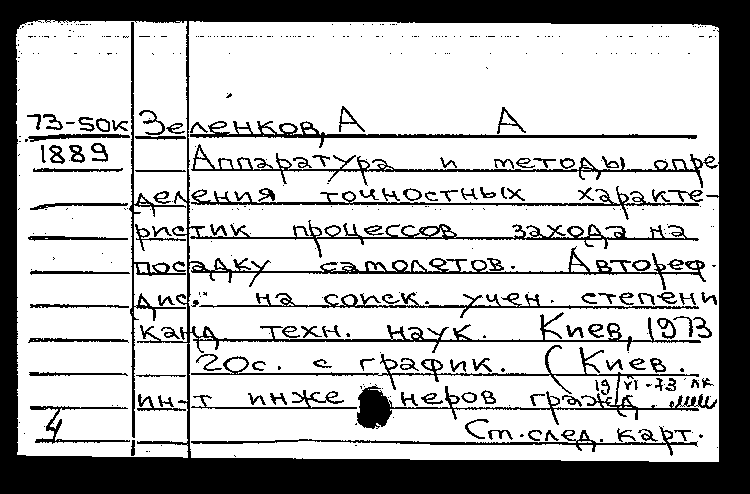 73-50к Зеленков, А А
1889 Аппаратура и методы опре
деления точностных характе-
ристик процессов захода на
посадку самолетов. Автореф.
дис. на соиск. учен. степени
канд техн. наук. Киев, 1973
20с. с график. (Киев.
19/VI-73 лк
ин-т инже неров гражд.
4 См.след. карт.